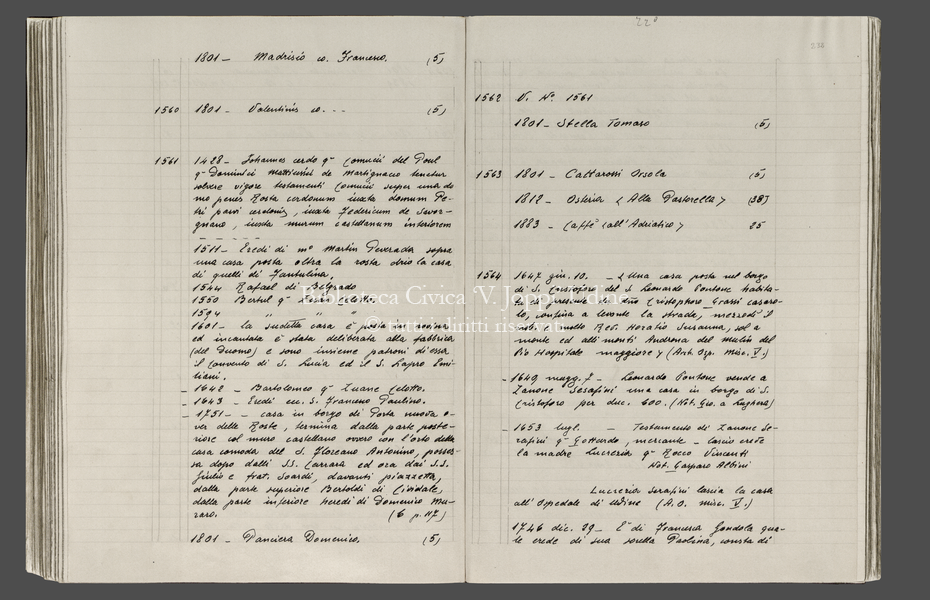 1801 – Madrisio co. Francesco. (5)
1560 1801 – Valentinis co. - - - (5)
1561 1428 – Johannes cerdo q^m Comucii del Poul
q^m Dominici de Martignacio tenetur
solvere vigore testamenti Comucii super una do
mo penes Rosta cerdonum iuxta domum Pe-
tri parvi cerdonis, iuxta Federicum de Savor-
gnano, iuxta murum castellanum interiorem
- - - - -
1511 – Eredi di m° Martin Peverada sopra
una casa posta oltra la rosta drio la casa
di quelli di Fantulina.
1544 Rafael di Belgrado
1550 Bertul q^m
1594 " " "
1601 – la sudetta casa è posta
ed incantata è stata deliberata alla fabbrica
(del Duomo) e sono insieme patroni di essa
il Convento di S. Lucia ed il S. Emi-
liani.
– 1642 – Bartolomeo q^m Zuane Clotto.
– 1643 – Eredi ecc. S. Francesco Paulino.
– 1751 – casa in borgo di Porta nuova o-
ver delle Roste, termina dalla parte poste-
riore col muro castellano ovvero con l'orto della
casa comoda del S. Floreano Antonino, posses-
sa dopo dalli SS. Carrara ed ora dai S.S.
Giulio e frat. Soardi, davanti piazzetta,
dalla parte superiore Bertoldi di Cividale,
dalla parte inferiore heredi di Domenico Mu-
zaro. (6 p. 117)
1801 – Panciera Domenico. (5)
1562 V. N° 1561
1801 – Stella Tomaso (5)
1563 1801 – Cattarossi Orsola (5)
1812 – Osteria < Alla Pastorella > (38)
1883 – Caffè < all'Adriatico > 25
1564 1647 giu. 10. – < Una casa posta nel borgo
di S. Cristoforo del S. Leonardo Contone habita-
ta di presente di Cristoforo Grassi casaro-
lo, confina a levante la strada, mezzodì il
Rev. Horatio Susanna, sol a
monte ed alli monti Androna del mulin del
Pio Hospitale maggiore > (Arch. Osp. Misc. V.)
– 1649 magg. 7 – Leonardo Contone vende a
Zanone Serafini una casa in borgo di S.
Cristoforo per duc. 600. (Not. Gio. a Lughera)
– 1653 lugl. – Testamento di Zanone Se-
rafini q^m Gottardo, mercante – lascia erede
la madre Lucrezia q^m Rocco Vincenti
Not. Gasparo Albini
Lucrezia Serafini lascia la casa
all'Ospedale di Udine (A.O. misc. V.)
1746 dic. 29 – E' di Francesca Gondola qua-
le erede di sua sorella Paolina, consta di
Biblioteca Civica "V. Joppi" Udine
© tutti i diritti riservati